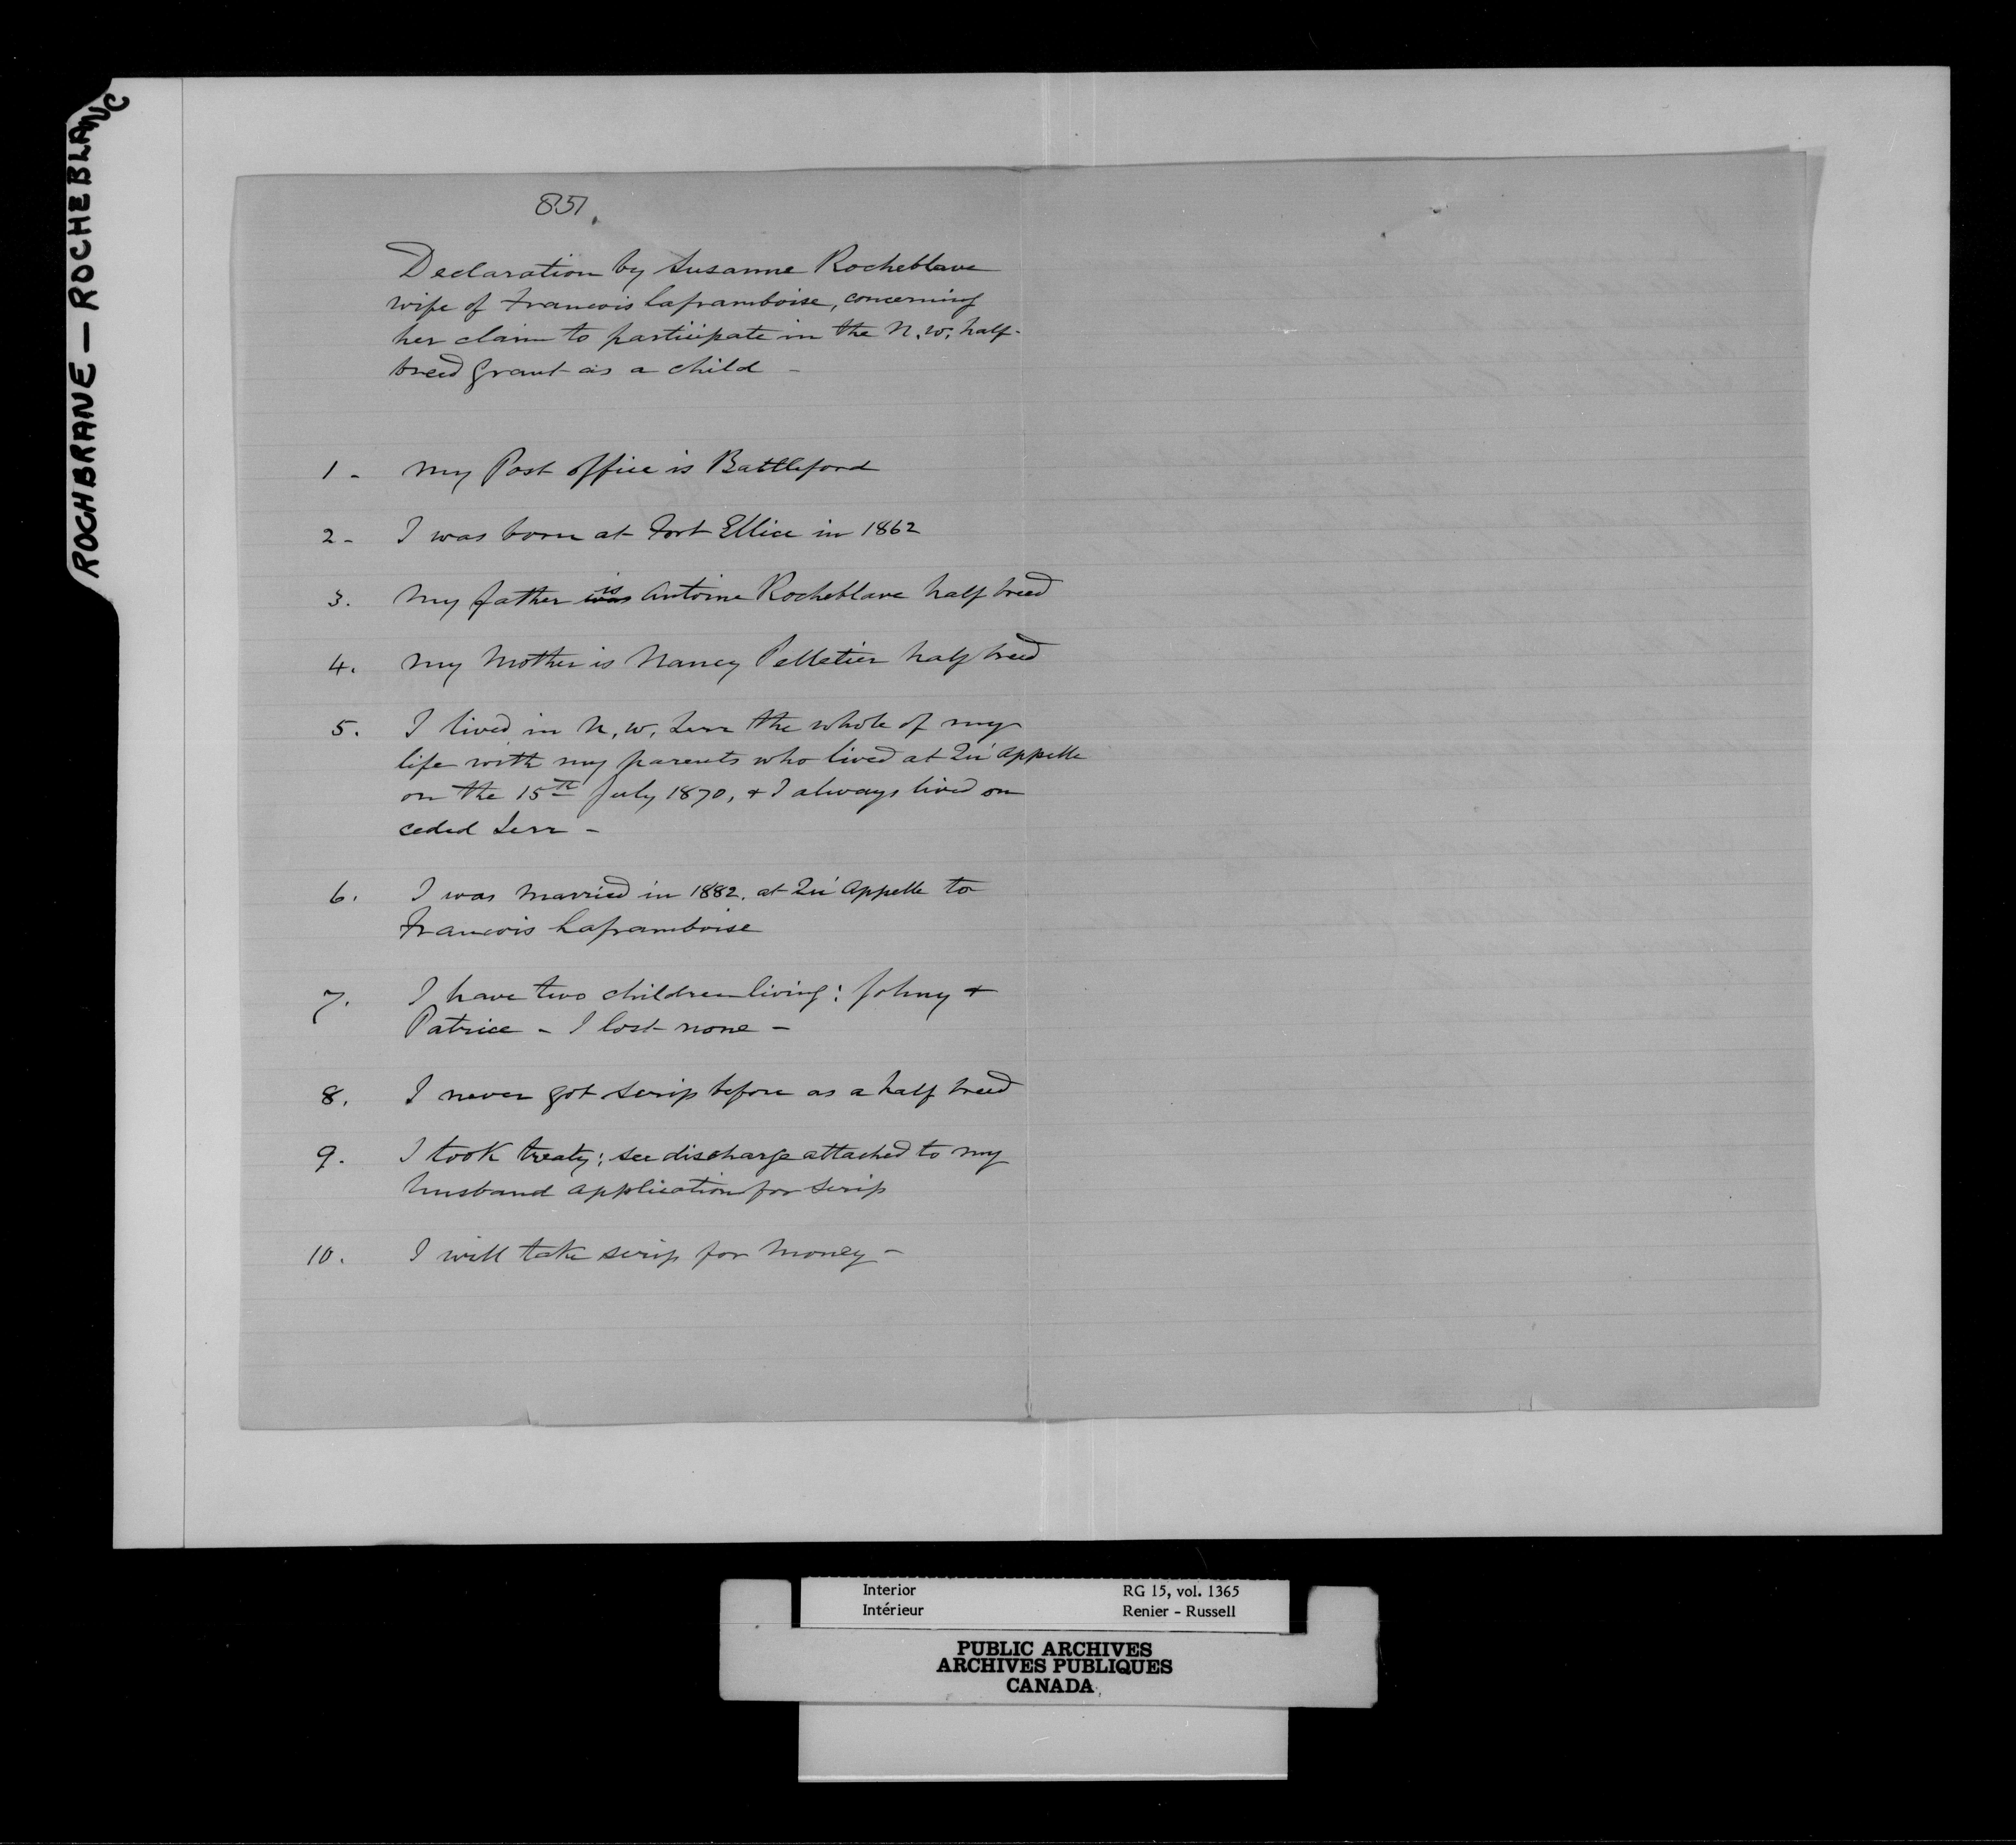 ROCHBRANE — ROCHEBLANC
851.
Declaration by Susanne Rocheblave
wife of Francois Laframboise, concerning
her claim to participate in the N. W. half-
breed grant as a child -
1 - My Post office is Battleford
2 - I was born at Fort Ellice in 1862
3. My father was is Antoine Rocheblave half breed
4. My Mother is Nancy Pelletier half breed
5. I lived in N. W. Terr the whole of my
life with my parents who lived at Qu'Appelle
on the 15th July 1870, & I always lived on
ceded Terr -
6. I was Married in 1882. at Qu'Appelle to
Francois Laframboise
7. I have two children living: Johny &
Patrice - I lost none -
8. I never got scrip before as a half breed
9. I took treaty; see discharge attached to my
husband application for scrip
10. I will take scrip for Money -
Interior RG 15, vol. 1365
Intérieur Renier - Russell
PUBLIC ARCHIVES
ARCHIVES PUBLIQUES
CANADA